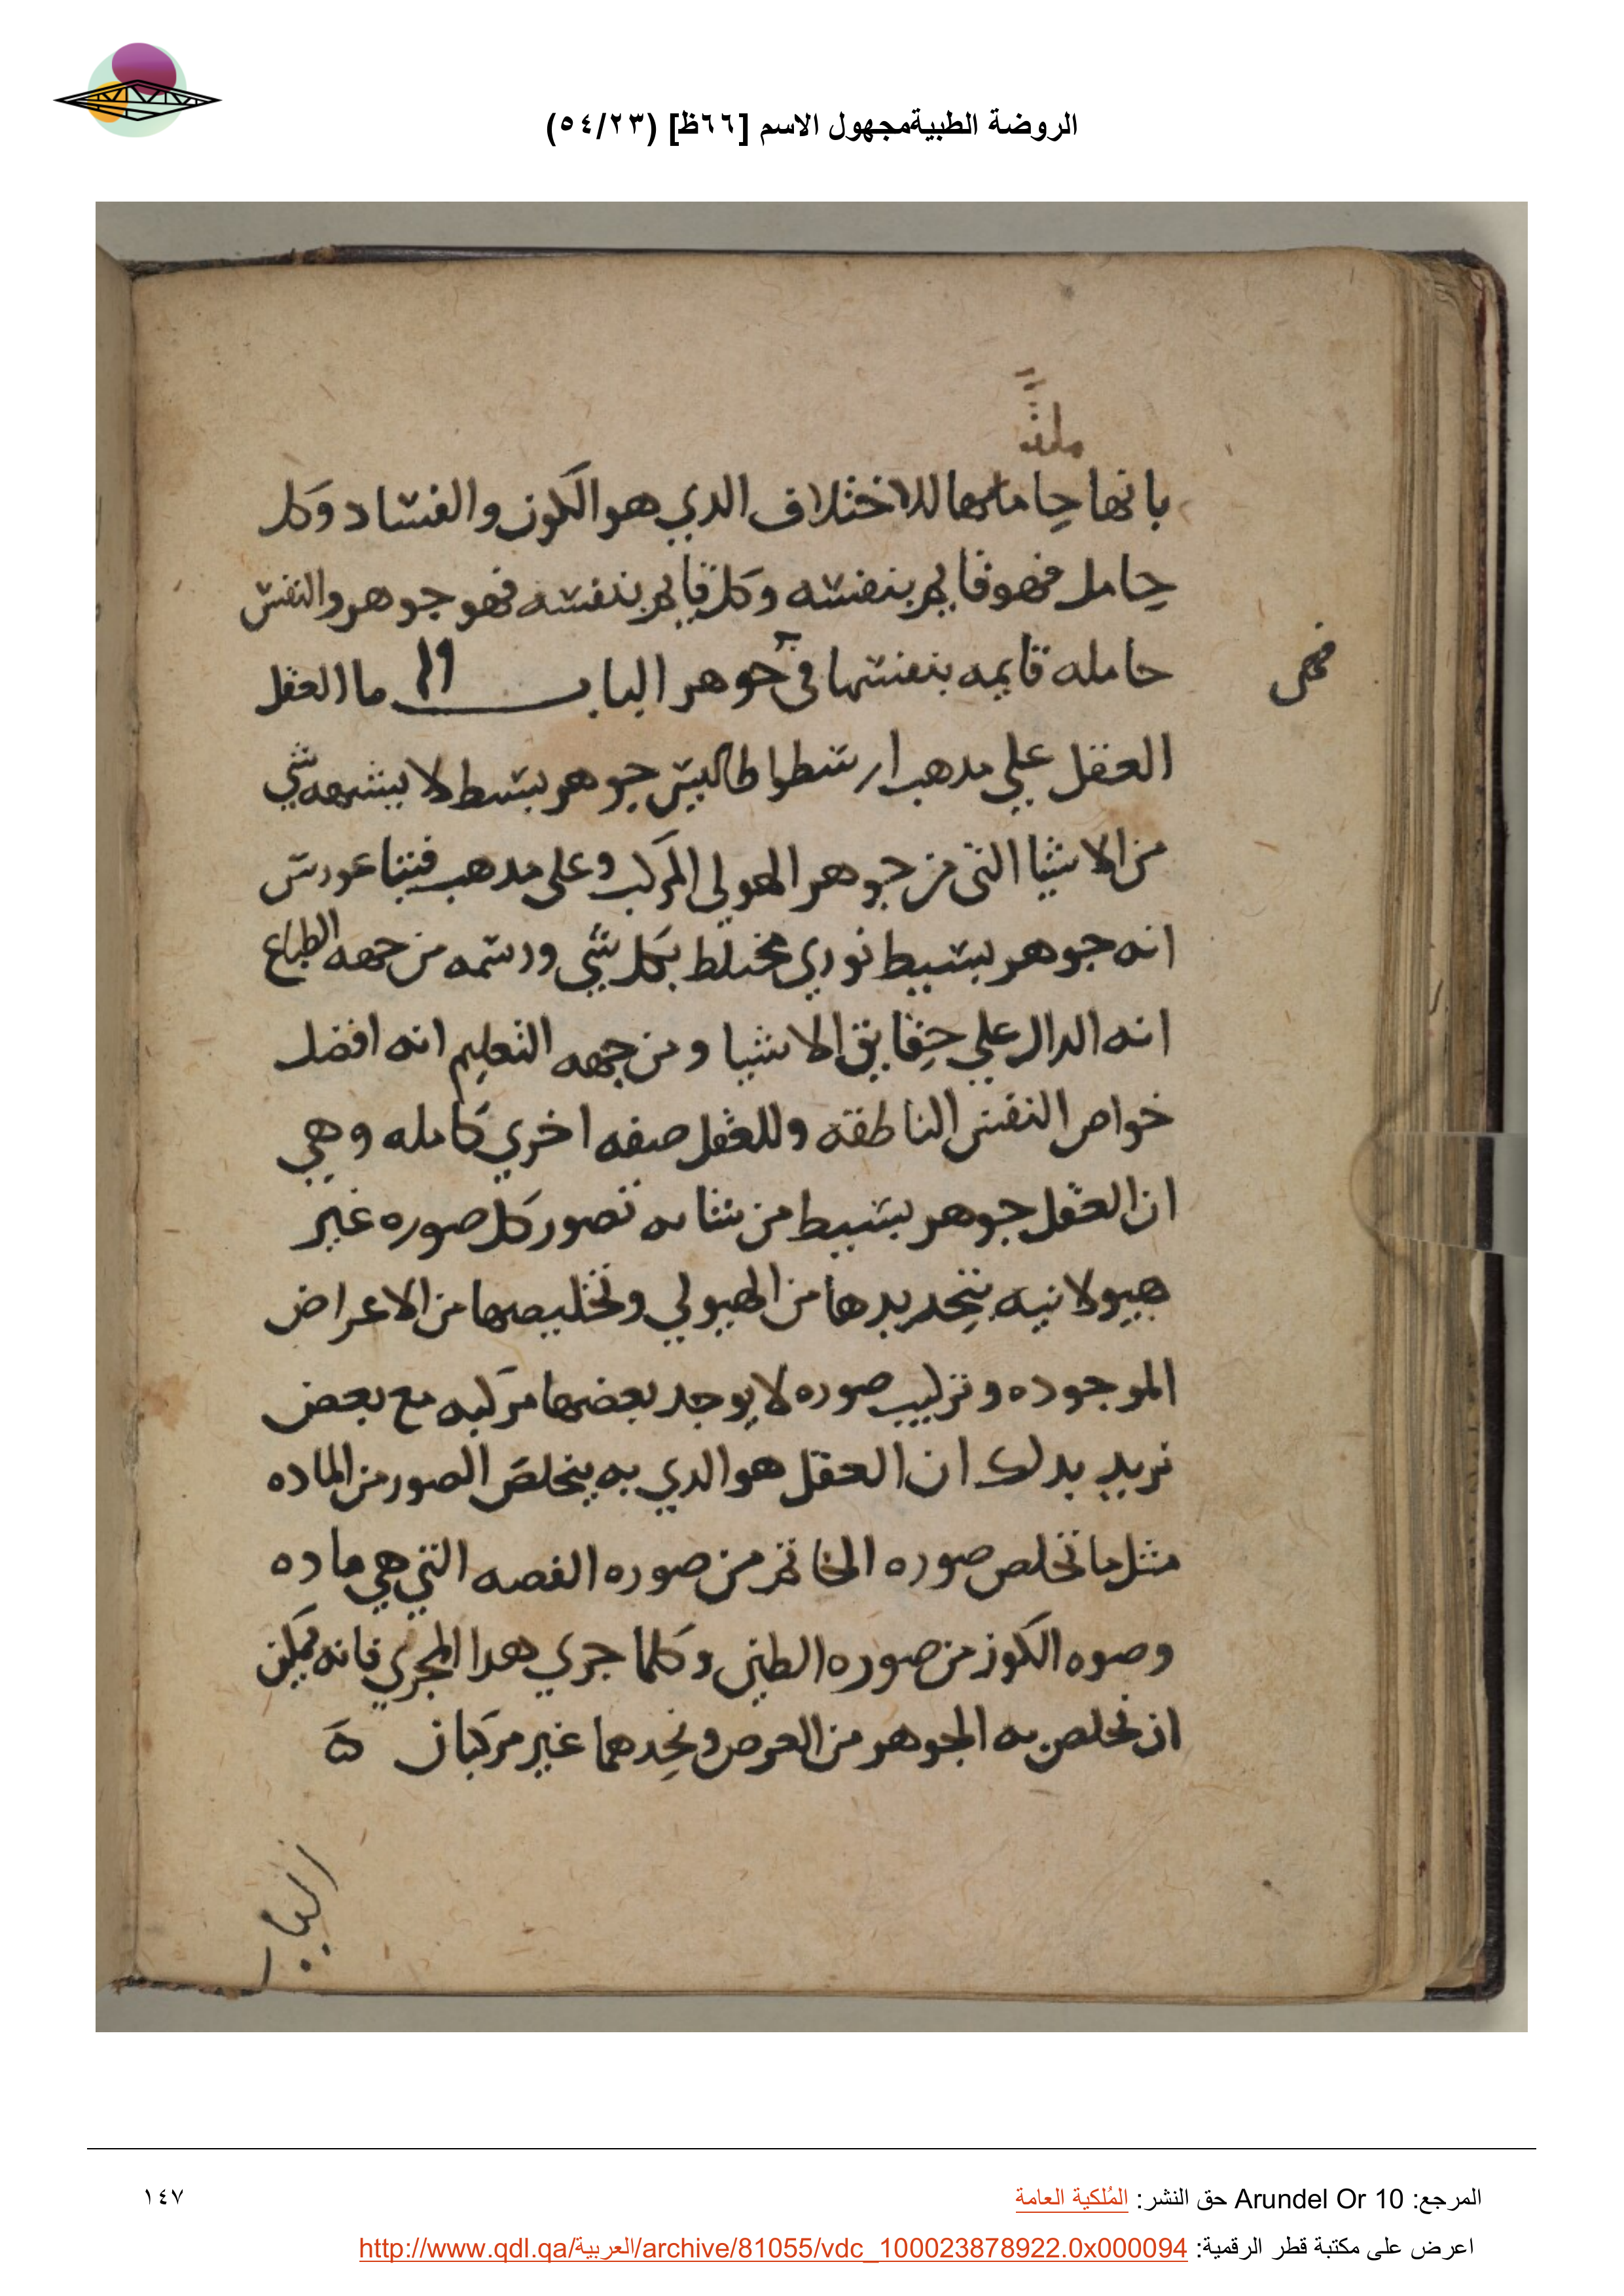 الروضة الطبيةمجهول الاسم [٦٦ظ] (٥٤/٢٣)
بانها حاملها للاختلاف الدي هو الكون والفساد وكل
حامل فهو قايم بنفسه وكل قايم بنفسه فهو جوهر والنفس
حامله قايمه بنفسها في جوهر الباب ١٩ ما العقل
فهى
العقل علي مدهب ارسطوطاليس جوهر بسط لا يشبهه شي
من الاشيا التي من جوهر الهولي المركب وعلى مدهب فيثاغورس
انه جوهر بسيط نوري مختلط بكل شي ورسمه من جهه الطباع
انه الدال علي حقايق الاشيا ومن جهه التعليم انه افضل
خواص النفس الناطقه وللعقل صفه اخري كامله وهي
ان العقل جوهر بسيط من شانه تصور كل صوره غير
هيولانيه بتجديدها من الهيولي وتخليصها من الاعراض
الموجوده وتركيب صوره لا يوجد بعضها مركبه مع بعض
نريد بدلك ان العقل هو الدي به يتخلص الصور من الماده
مثل ما تخلص صوره الخاتم من صوره الفصه التي هي ماده
وصوه الكوز من صوره الطين وكلما جري هدا المجري فانه يمكن
ان نخلص به الجوهر من العرض ونجدهما غير مركبان
المرجع: Arundel Or 10 حق النشر: المُلكية العامة ١٤٧
اعرض على مكتبة قطر الرقمية: http://www.qdl.qa/العربية/archive/81055/vdc_100023878922.0x000094